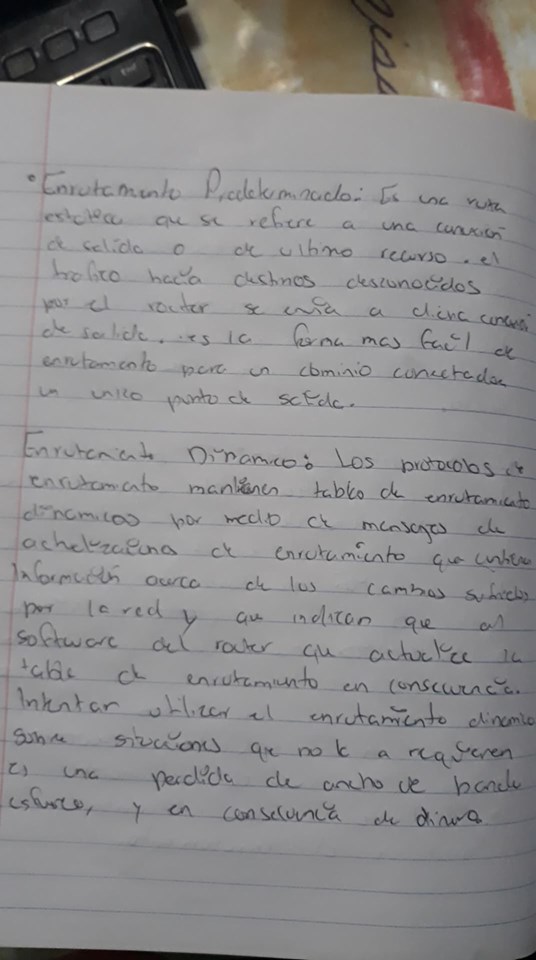 • Enrutamiento Predeterminado: Es una ruta
estatica que se refiere a una conexion
de salida o de ultimo recurso. el
trafico hacia destinos desconocidos
por el router se envia a dicha conexion
de salida. es la forma mas facil de
enrutamiento para un dominio conectado a
un unico punto de salida.
Enrutamiento Dinamico: Los protocolos de
enrutamiento mantienen tablas de enrutamiento
dinamicas por medio de mensages de
de enrutamiento que contienen
Información acerca de los cambios sufridos
por la red y que indican que al
software del router que actualice la
tabla de enrutamiento en consecuencia.
Intentar utilizar el enrutamiento dinamico
sobre situaciones que no l a requieren
es una perdida de ancho de banda
esfuerzo, y en consecuencia de dinero